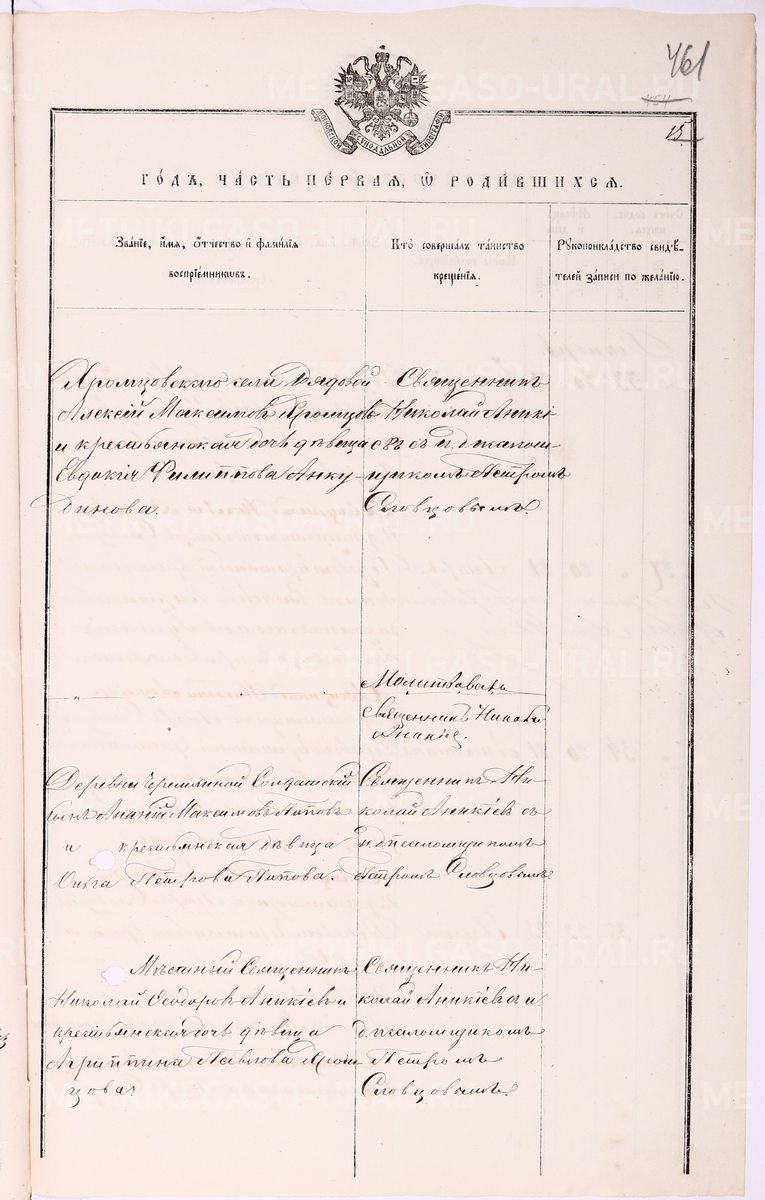 461
454
15
МОСКОВСКОЙ СѴНОДАЛЬНОЙ ТИПОГРАФІИ
ГО́ДЪ, ЧА́СТЬ ПЕ́РВАЯ, Ѡ҆ РОДИ́ВШИХСЯ.
Зва́нїе, и҆́мя, ѻ҆́тчество и҆ фами́лїя
воспрїе́мниковъ.
Кто̀ соверша́лъ та́инство
креще́нїя.
Рꙋкоприкла́дство свидѣ́-
телей за́писи по жела́нїю.
Хромцовскаго села Рядовой
Алексій Максимовъ Хромцовъ
и крестьянская дочь дѣвица
Евдокія Филиппова Анку-
динова.
Священникъ
Николай Аникі
евъ съ и. д. псалом-
щикомъ Петромъ
Словцовымъ.
Молитвовалъ
священникъ Никола
Аникіе.
Деревни Черемхиной Солдатскій
сынъ Ананій Максимовъ Поповъ
и крестьянская дѣвица
Ольга Петрова Попова.
Священникъ Ни-
колай Аникіевъ съ
и. д. псаломщикомъ
Петромъ Словцовымъ.
Мѣстный Священникъ
Николай Ѳеодоровъ Аникіевъ и
крестьянская дочь дѣвица
Агриппина Павлова Хром
цова
Священникъ Ни-
колай Аникіевъ и.
д. псаломщикомъ
Петромъ
Словцовымъ.
METRIKI.GASO-URAL.RU